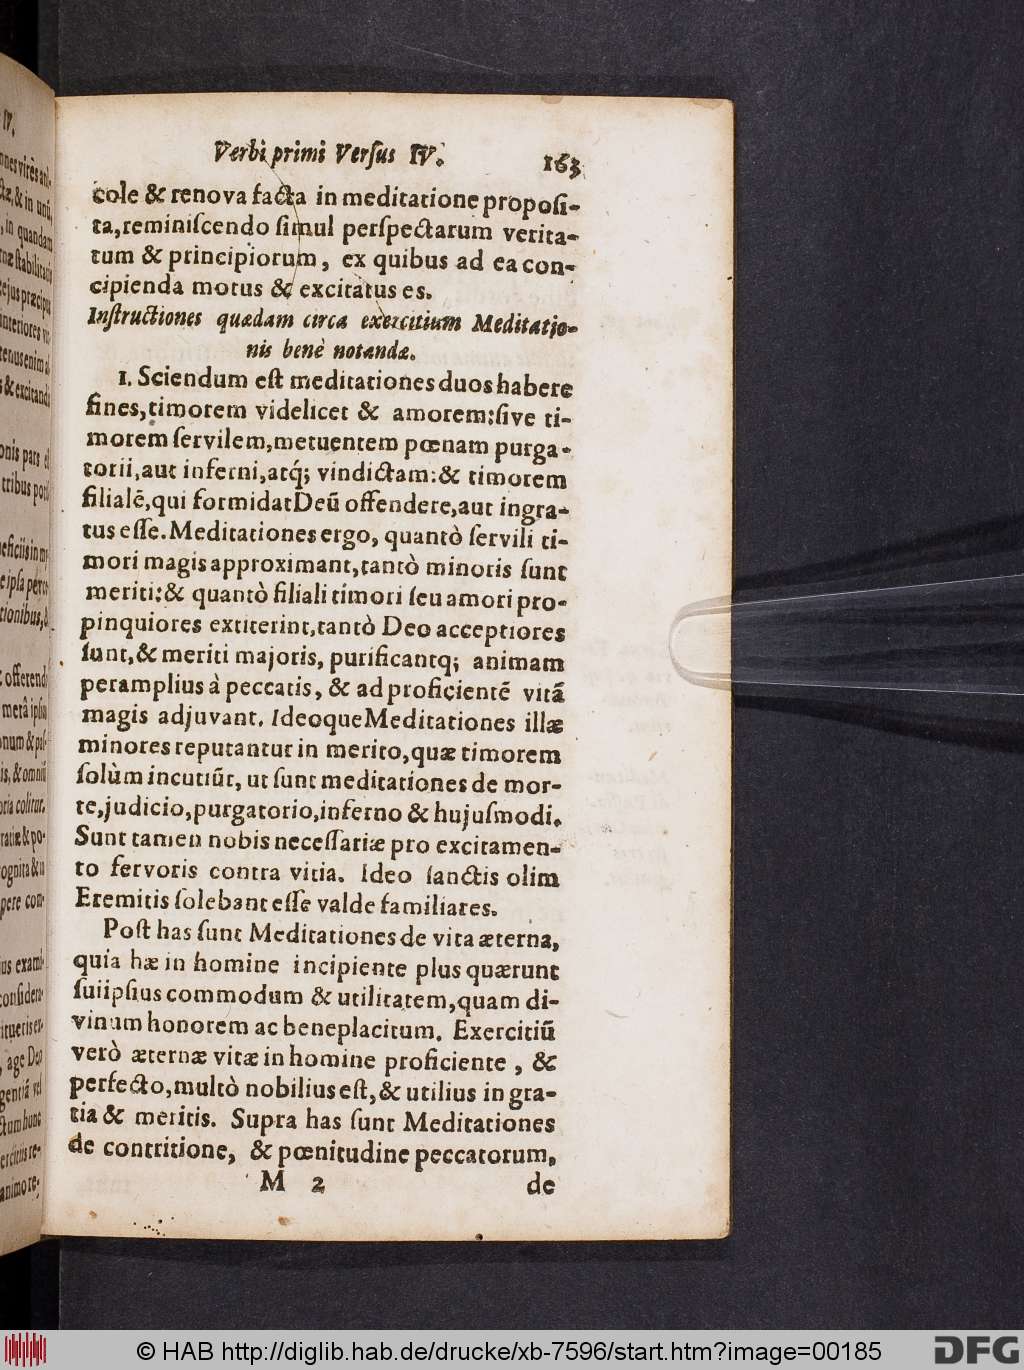 Verbi primi Versus IV. 163
cole & renova facta in meditatione proposi-
ta, reminiſcendo ſimul perſpectarum verita-
tum & principiorum, ex quibus ad ea con-
cipienda motus & excitatus es.
Inſtructiones quædam circa exercitium Meditatio-
nis benè notandæ.
1. Sciendum eſt meditationes duos habere
fines, timorem videlicet & amorem: ſive ti-
morem ſervilem, metuentem pœnam purga-
torii, aut inferni, atq́; vindictam: & timorem
filialē, qui formidat Deū offendere, aut ingra-
tus eſſe. Meditationes ergo, quantò ſervili ti-
mori magis approximant, tantò minoris ſunt
meriti: & quantò filiali timori ſeu amori pro-
pinquiores extiterint, tantò Deo acceptiores
ſunt, & meriti majoris, purificantq; animam
peramplius à peccatis, & ad proficientē vitā
magis adjuvant. Ideoque Meditationes illæ
minores reputantur in merito, quæ timorem
ſolùm incutiūt, ut ſunt meditationes de mor-
te, judicio, purgatorio, inferno & hujuſmodi.
Sunt tamen nobis neceſſariæ pro excitamen-
to fervoris contra vitia. Ideo ſanctis olim
Eremitis ſolebant eſſe valde familiares.
Poſt has ſunt Meditationes de vita æterna,
quia hæ in homine incipiente plus quærunt
ſui ipſius commodum & utilitatem, quam di-
vinum honorem ac beneplacitum. Exercitiū
verò æternæ vitæ in homine proficiente, &
perfecto, multò nobilius eſt, & utilius in gra-
tia & meritis. Supra has ſunt Meditationes
de contritione, & pœnitudine peccatorum,
M 2 de
© HAB http://diglib.hab.de/drucke/xb-7596/start.htm?image=00185
DFG